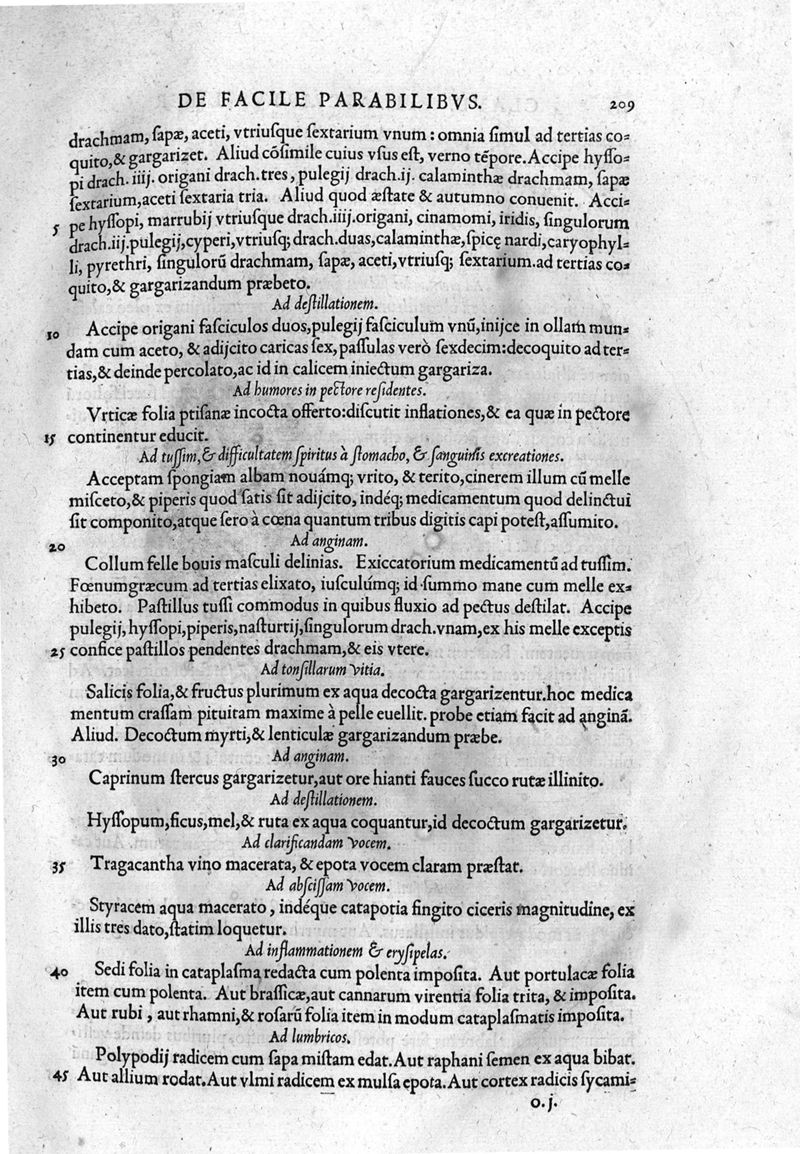 DE FACILE PARABILIBVS. 209
drachmam, ſapæ, aceti, vtriuſque ſextarium vnum: omnia ſimul ad tertias co=
quito,& gargarizet. Aliud cõſimile cuius vſus eſt, verno tẽpore. Accipe hyſſo=
pi drach. iiij. origani drach. tres, pulegij drach. ij. calaminthæ drachmam, ſapæ
ſextarium,aceti ſextaria tria. Aliud quod æſtate & autumno conuenit. Acci=
5 pe hyſſopi, marrubij vtriuſque drach.iiij.origani, cinamomi, iridis, ſingulorum
drach.iij.pulegij,cyperi,vtriuſq; drach.duas,calaminthæ,ſpicę nardi,caryophyl=
li, pyrethri, ſingulorũ drachmam, ſapæ, aceti,vtriuſq; ſextarium.ad tertias co=
quito,& gargarizandum præbeto.
Ad deſtillationem.
10 Accipe origani faſciculos duos,pulegij faſciculum vnũ,inijce in ollam mun=
dam cum aceto, & adijcito caricas ſex,paſſulas verò ſexdecim:decoquito ad ter=
tias,& deinde percolato,ac id in calicem iniectum gargariza.
Ad humores in pectore reſidentes.
Vrticæ folia ptiſanæ incocta offerto:diſcutit inflationes,& ea quæ in pectore
15 continentur educit.
Ad tuſſim,& difficultatem ſpiritus à ſtomacho, & ſanguinis excreationes.
Acceptam ſpongiam albam nouámq; vrito, & terito,cinerem illum cũ melle
miſceto,& piperis quod ſatis ſit adijcito, indéq; medicamentum quod delinctui
ſit componito,atque ſero à cœna quantum tribus digitis capi poteſt,aſſumito.
20 Ad anginam.
Collum felle bouis maſculi delinias. Exiccatorium medicamentũ ad tuſſim.
Fœnumgræcum ad tertias elixato, iuſculúmq; id ſummo mane cum melle ex=
hibeto. Paſtillus tuſſi commodus in quibus fluxio ad pectus deſtilat. Accipe
pulegij,hyſſopi,piperis,naſturtij,ſingulorum drach.vnam,ex his melle exceptis
25 confice paſtillos pendentes drachmam,& eis vtere.
Ad tonſillarum vitia.
Salicis folia,& fructus plurimum ex aqua decocta gargarizentur.hoc medica
mentum craſſam pituitam maxime à pelle euellit. probe etiam facit ad anginã.
Aliud. Decoctum myrti,& lenticulæ gargarizandum præbe.
30 Ad anginam.
Caprinum ſtercus gargarizetur,aut ore hianti fauces ſucco rutæ illinito.
Ad deſtillationem.
Hyſſopum,ficus,mel,& ruta ex aqua coquantur,id decoctum gargarizetur.
Ad clarificandam vocem.
35 Tragacantha vino macerata, & epota vocem claram præſtat.
Ad abſciſſam vocem.
Styracem aqua macerato, indéque catapotia fingito ciceris magnitudine, ex
illis tres dato,ſtatim loquetur.
Ad inflammationem & eryſipelas.
40 Sedi folia in cataplaſma redacta cum polenta impoſita. Aut portulacæ folia
item cum polenta. Aut braſſicæ,aut cannarum virentia folia trita, & impoſita.
Aut rubi, aut rhamni,& roſarũ folia item in modum cataplaſmatis impoſita.
Ad lumbricos.
Polypodij radicem cum ſapa miſtam edat. Aut raphani ſemen ex aqua bibat.
45 Aut allium rodat. Aut vlmi radicem ex mulſa epota. Aut cortex radicis ſycami=
o.j.